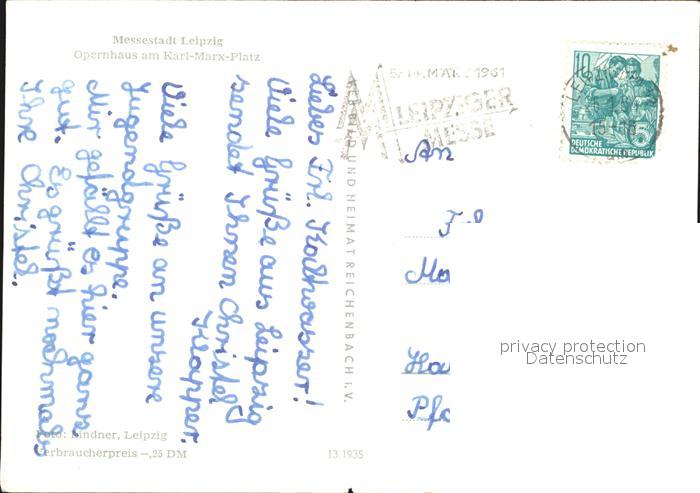 Messestadt Leipzig
Opernhaus am Karl-Marx-Platz
Liebes Frl.
Viele Grüße aus Leipzig
sendet Ihnen Christel
Viele Grüße an unsere
Jugendgruppe.
Mir gefällt es hier ganz
gut. Es grüßt nochmals
Ihre Christel.
Foto: Lindner, Leipzig
Verbraucherpreis -,25 DM
13 1935
BILD UND HEIMAT REICHENBACH I. V.
MÄRZ 1961
LEIPZIGER
MESSE
10
5
DEUTSCHE
DEMOKRATISCHE REPUBLIK
An
privacy protection
Datenschutz